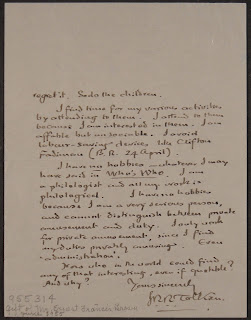 regret it. So do the children.
I find time for my various activities
by attending to them. I attend to them
because I am interested in them. I am
affable but unsociable. I avoid
labour-saving devices like Clifton
Fadiman (P.R. 24 April).
I have no hobbies – whatever I may
have said in Who's Who. I am
a philologist and all my work is
philological. I have no hobbies
because I am a very serious person,
and cannot distinguish between private
amusement and duty. I only work
for private amusement, since I find
my duties privately amusing. Even
administration.
How who in the world could find
any of that interesting, even if quotable?
And why?
Yours sincerely
JRR Tolkien.
955314
Gift of
1985